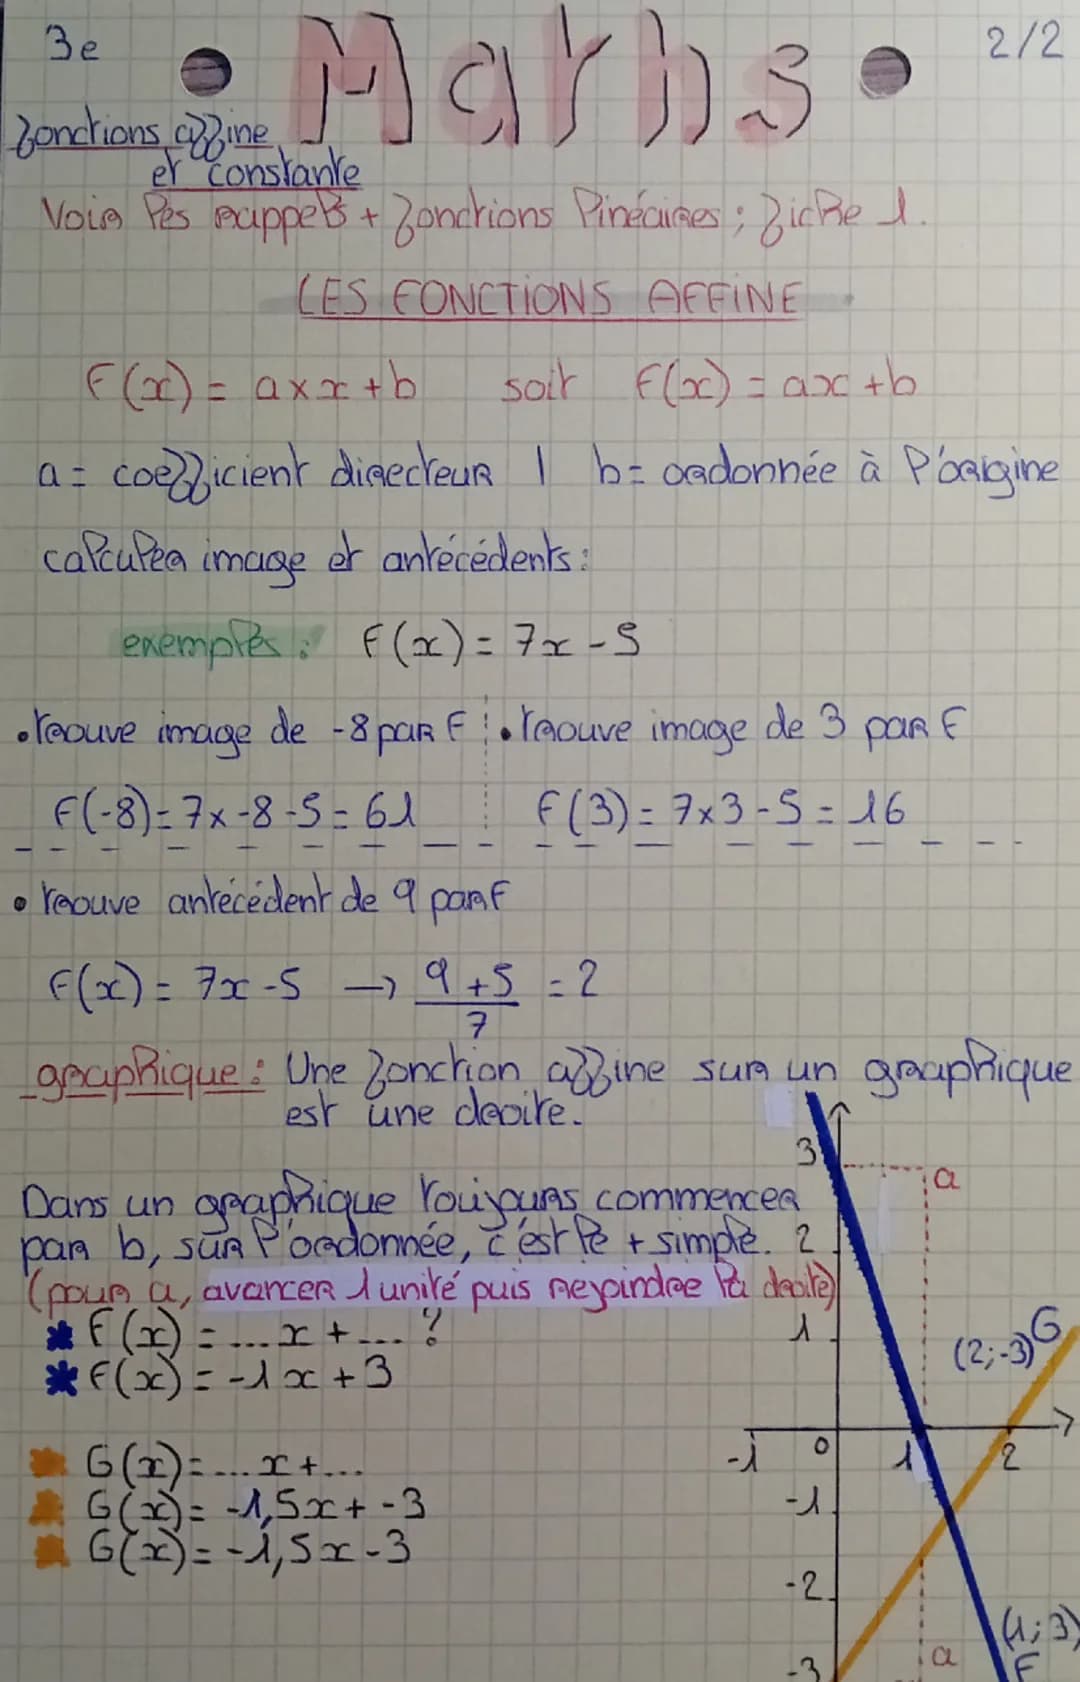 3e
Maths
2/2
Fonctions affine
et constante
Voir les rappels + Fonctions linéaires ; fiche 1.
LES FONCTIONS AFFINE
F(x) = a x x + b soit F(x) = ax + b
a = coefficient directeur | b = ordonnée à l'origine
calculer image et antécédents :
exemples : F(x) = 7x - 5
• trouve image de -8 par F
• trouve image de 3 par F
F(-8) = 7 x -8 - 5 = 61
F(3) = 7 x 3 - 5 = 16
• trouve antécédent de 9 par F
F(x) = 7x - 5 → 9 + 5 / 7 = 2
graphique : Une fonction affine sur un graphique
est une droite.
Dans un graphique toujours commencer
par b, sur l'ordonnée, c'est le + simple.
(pour a, avancer 1 unité puis rejoindre la droite)
* F(x) = ... x + ... ?
* F(x) = -1x + 3
G(x) = ... x + ...
G(x) = -1,5x + -3
G(x) = -1,5x - 3
3
a
2
1
(2;-3) G
-1 0 1 2
-1
-2
-3
a
(1;3)
F